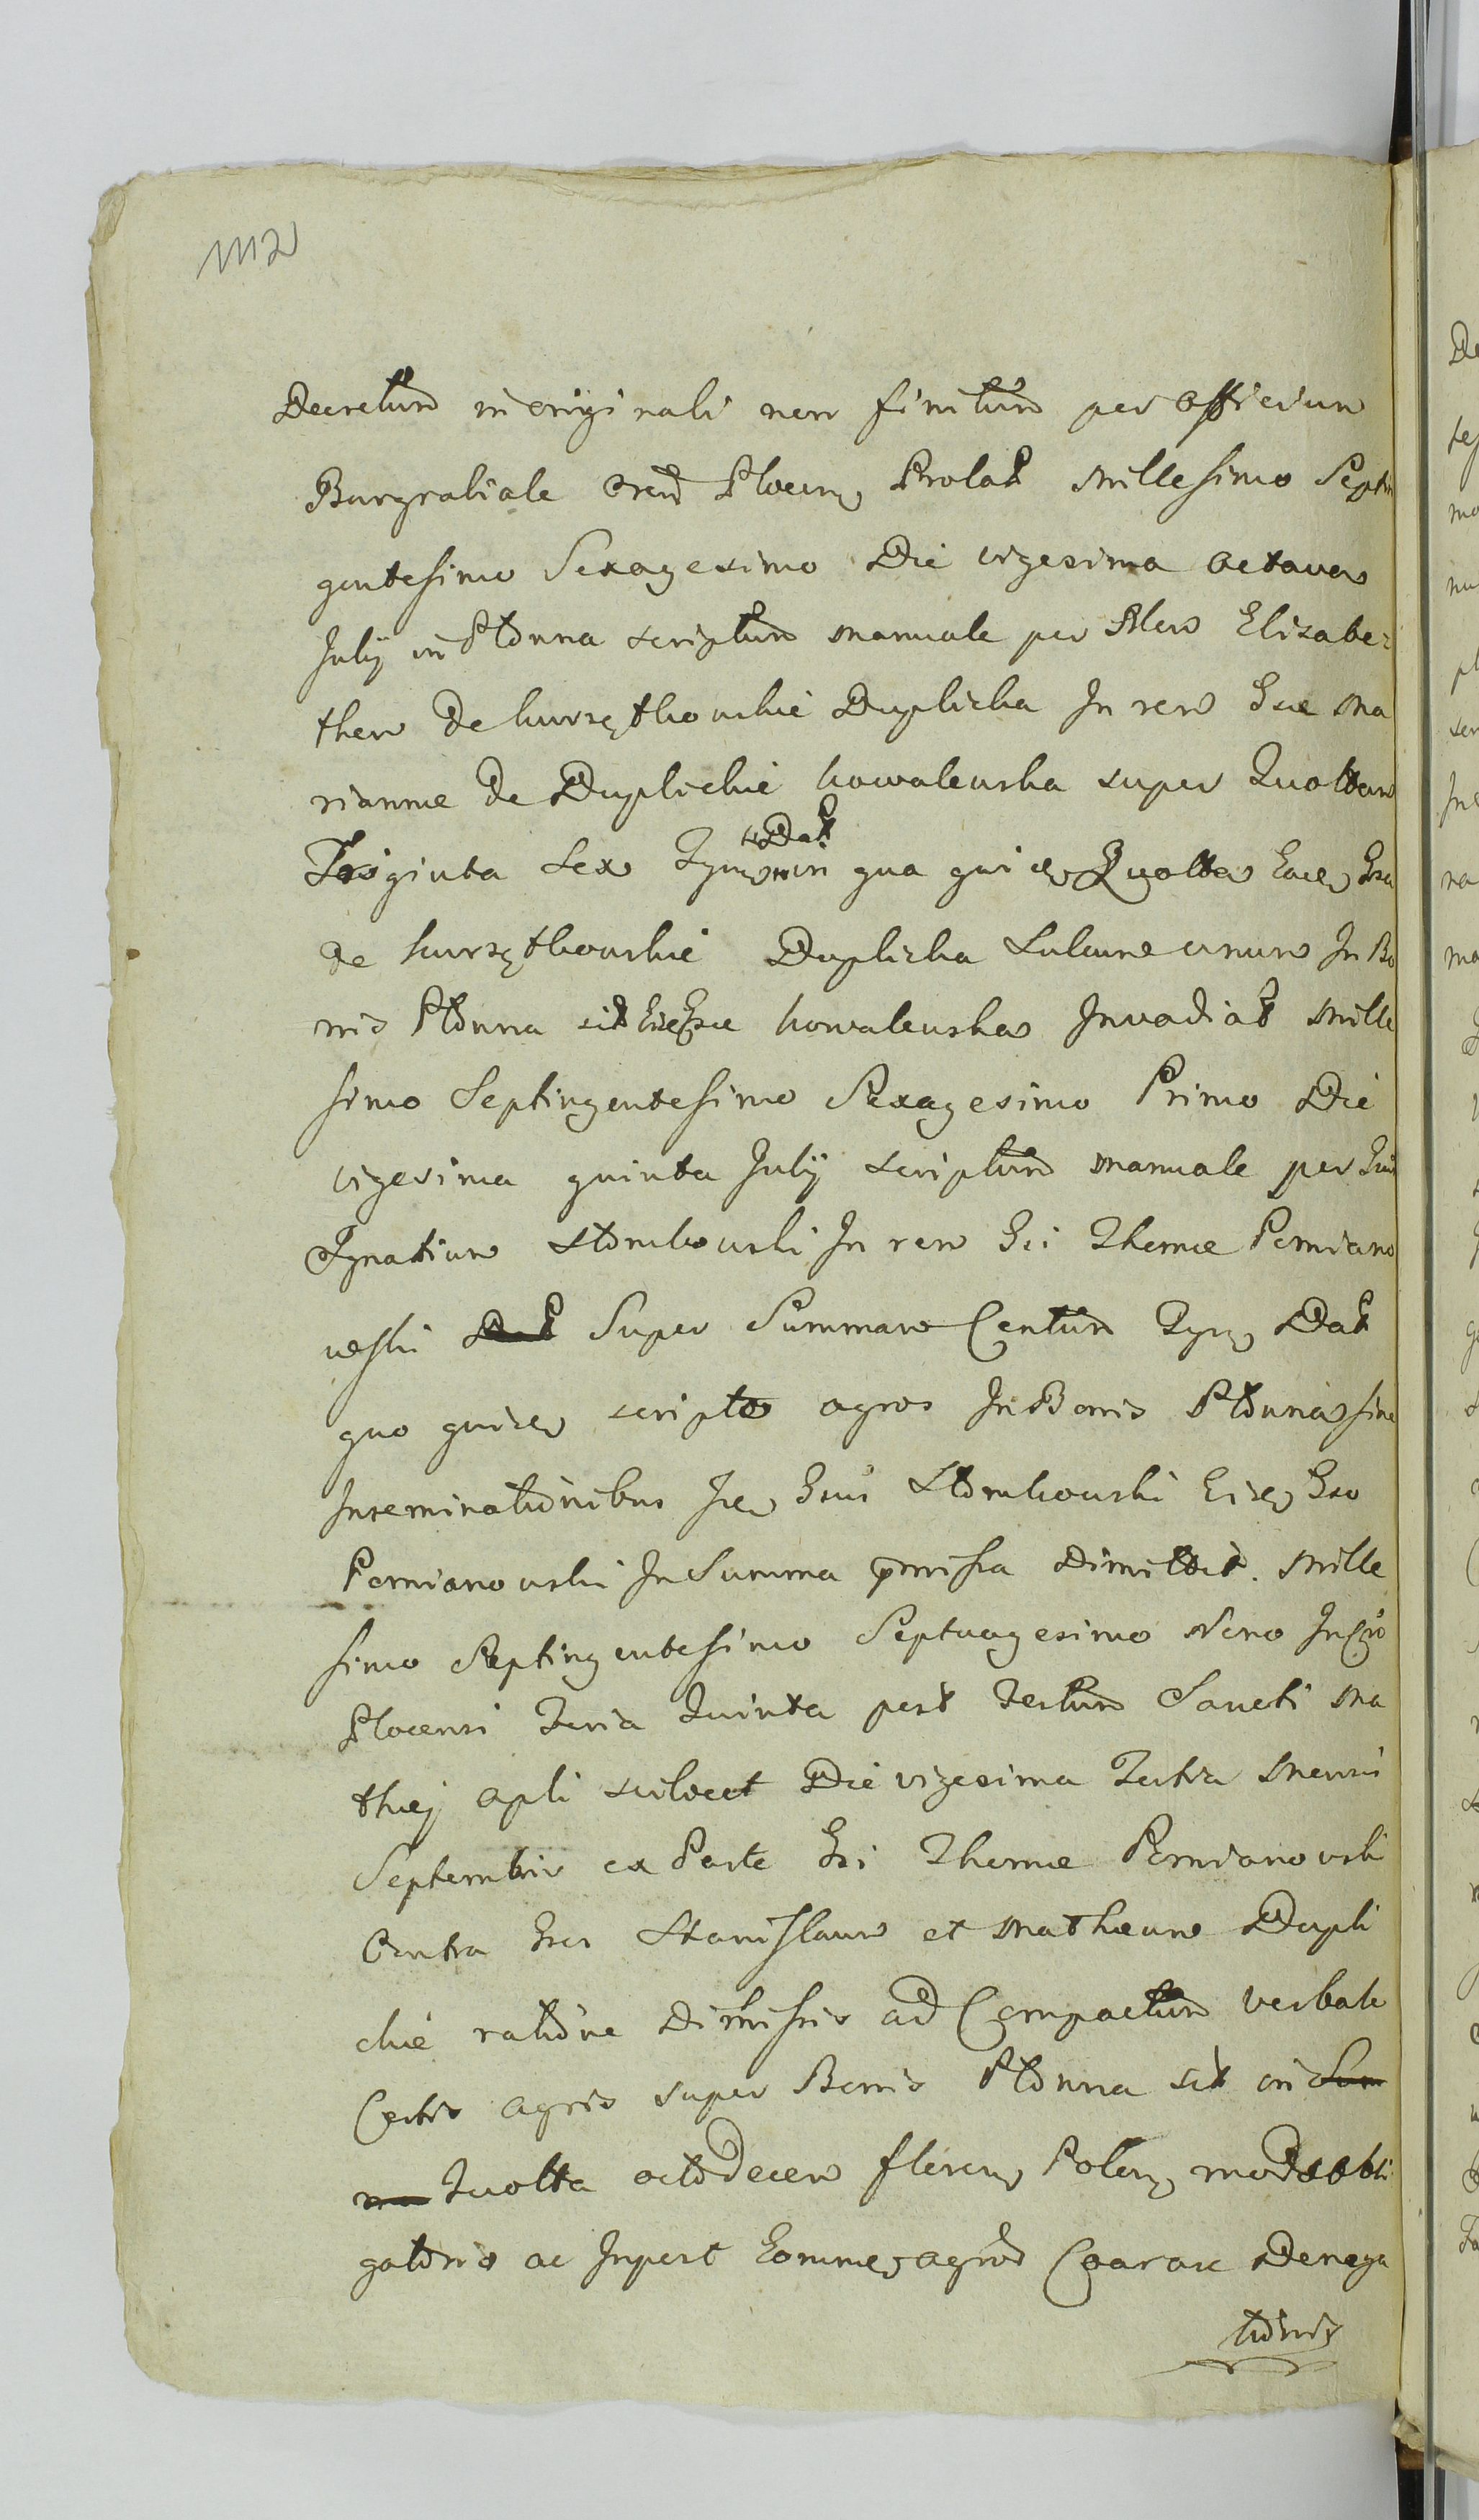 1112
Decretum in originali non finitum per officium
Burgrabiale Plocen Prolat Millesimo Septin
gentesimo Sexagesimo Die vigesima octava
July in Płonna scriptum manuale per Elizabe=
tham De Kurzętkowskie Duplicka In rem Gsae Ma
riannae De Duplickie Kowalewska super Quottam
Triginta Sex Tynf in Dat qua quidem Quotta Eadem Gsa
de Kurzętkowskie Duplicka unum In Bo
nis Płonna sit Eidem Gsae Kowalewska Invadiat Mille
simo Septingentesimo Sexagesimo Primo Die
vigesima quinta July scriptum manuale per Gsum
Ignatium Słomkowski In rem Gsi Thomae Pomiano
wski Super Summam Centum Tynf Dat
quo quidem scripto agros In Bonis Płonna sine
Inseminationibus Idem Gsus Słomkowski Eidem Gso
Pomianowski In Summa pmissa Dimittit. Mille
simo Septingentesimo Septuagesimo Nono In
Plocensi Feria Quinta post Festum Sancti Ma
thaej apli scilicet Die vigesima Tertia Mensis
Septembris ex Parte Gsi Thomae Pomianowski
Contra Gsos Stanislaum et Mathaeum Dupli
ckie ratione Dimissis ad Compactum verbale
Certis agris super Bonis Płonna sit in Sum
ma Quotta octodecem floren Polon modo obli
gatorio ac Inpost Eommdem agrorum Denega
tionis